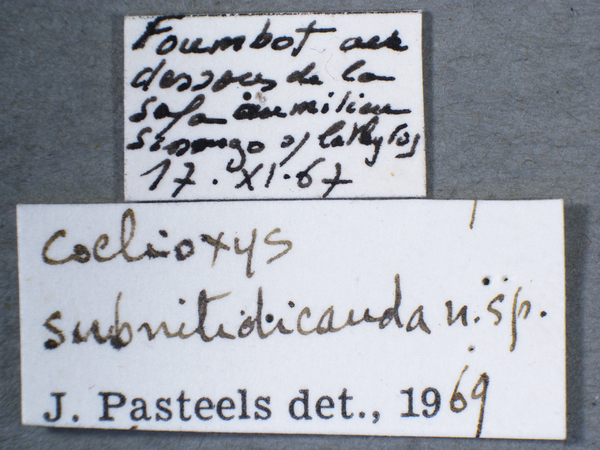 Foumbot au
dessous de la
safa au milieu
s/ lathyros
17.XI.67
Coelioxys
subnitidicauda n.sp.
J. Pasteels det., 1969